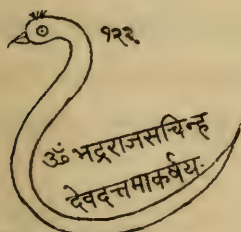 १२२
ॐ भद्रराजसचिन्ह
देवदत्तमाकर्षय